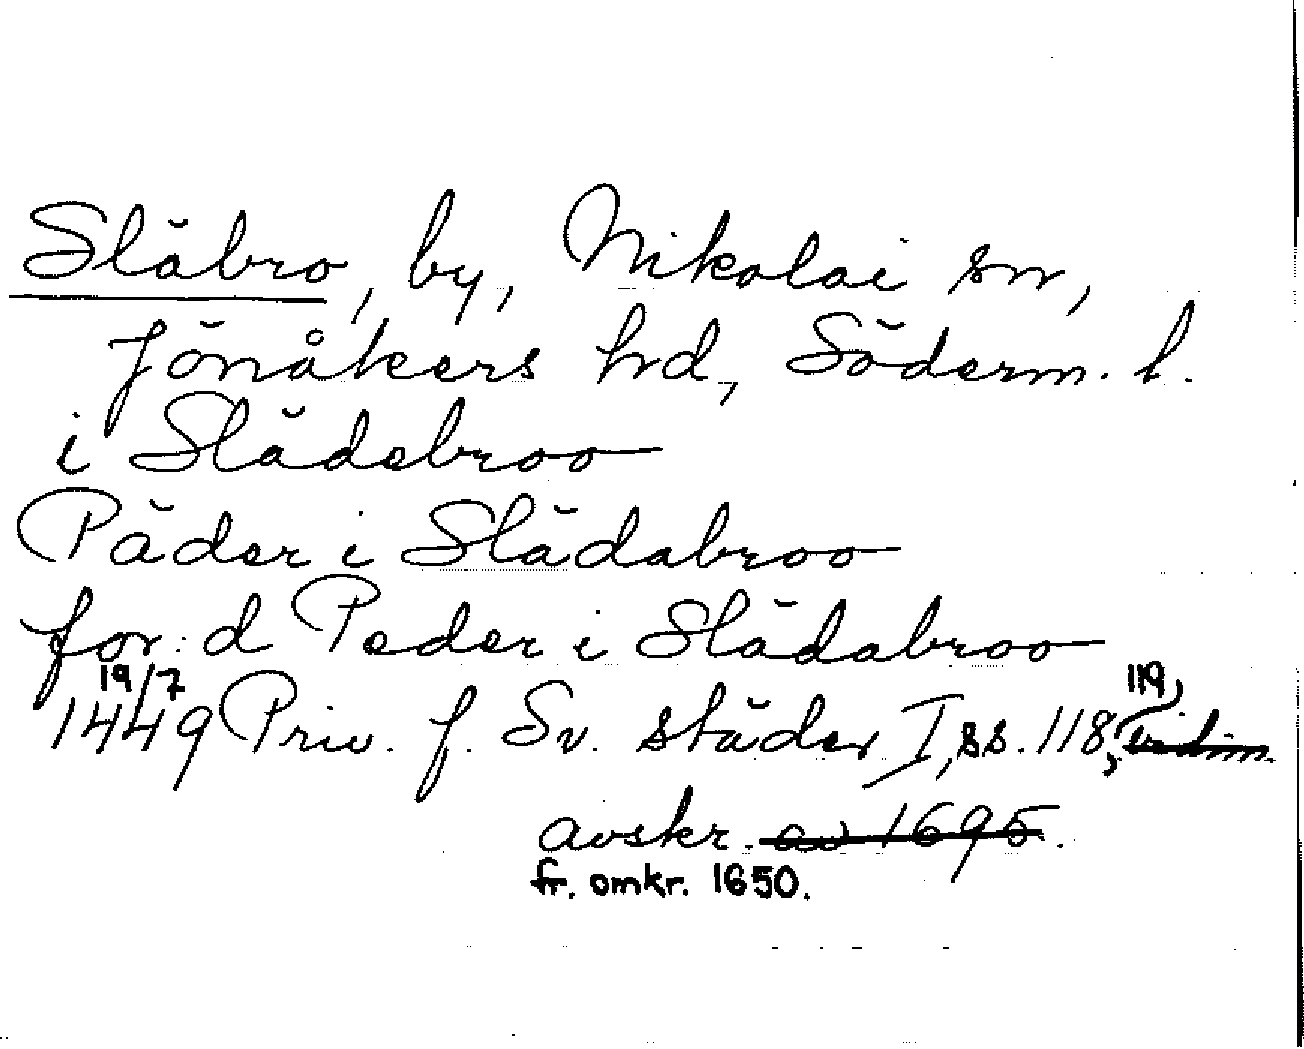 Släbro, by, Nikolai sn,
Jönåkers hd, Söderm. l.
i Slädebroo
Päder i Slädabroo
for: d Peder i Slädabroo
19/7
1449 Priv. f. Sv. städer I, ss. 118, 119, vidim.
avskr. av 1695.
fr. omkr. 1650.